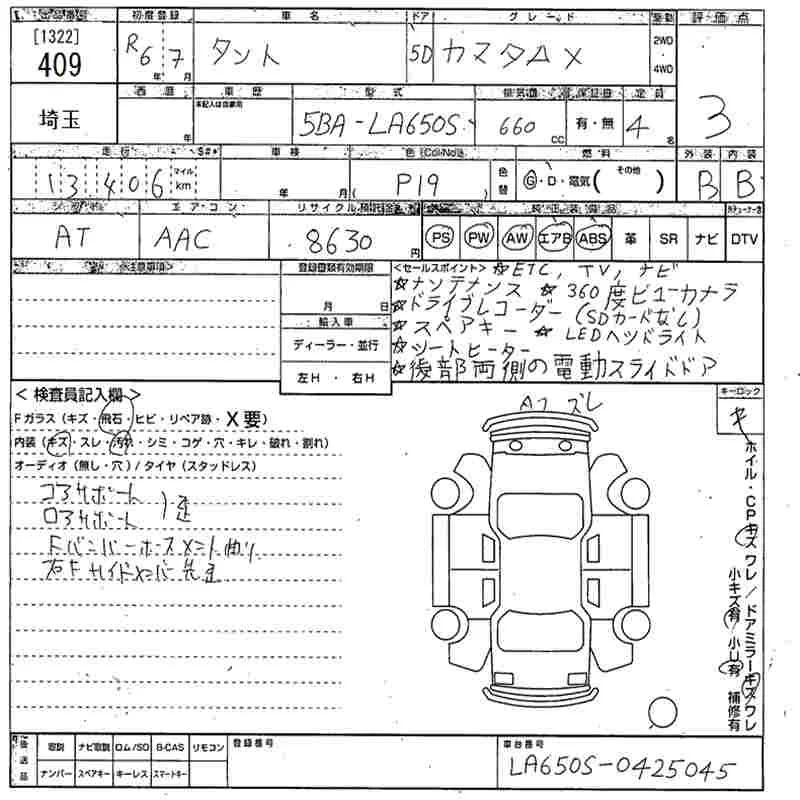 出品番号 初度登録 車名 ドア グレード 駆動 評価点
[1322]
409 R6 年 7 月 タント 5D カスタム X 2WD ・ 4WD 3
埼玉 車歴 型式 排気量 保証書 定員
本記入は自家用
年 5BA-LA650S 660 cc 有・無 4 名
走行 車検 色 燃料 外装 内装
13406 マイル km 年 月 P19 色替 G・D・電気( その他 ) B B
シフト エアコン リサイクル預託金 純正装備
AT AAC 8630 円 PS PW AW エアB ABS 革 SR ナビ DTV
<注意事項> 登録書類有効期限
月 日
輸入車
ディーラー・並行
左H ・ 右H
<セールスポイント> ☆ETC, TV, ナビ
☆メンテナンス ☆360度ビューカメラ
☆ドライブレコーダー (SDカードなし)
☆スペアキー ☆LEDヘッドライト
☆シートヒーター
☆後部両側の電動スライドドア
<検査員記入欄>
Fガラス (キズ・飛石・ヒビ・リペア跡・X要)
内装 (キズ・スレ・汚れ・シミ・コゲ・穴・キレ・破れ・割れ)
オーディオ (無し・穴) / タイヤ (スタッドレス)
コアサポート
ロアサポート
Fバンパーホースメント曲り
右Fサイドメンバー先
ズレ
キーロック
キ
ホイル・CPキズワレ/ドアミラーキズ/ワレ
小キズ有 小U有 補修有
後送品 取説 ナビ取説 ロム/SD B-CAS リモコン 登録番号 車台番号
ナンバー スペアキー キーレス スマートキー LA650S-0425045